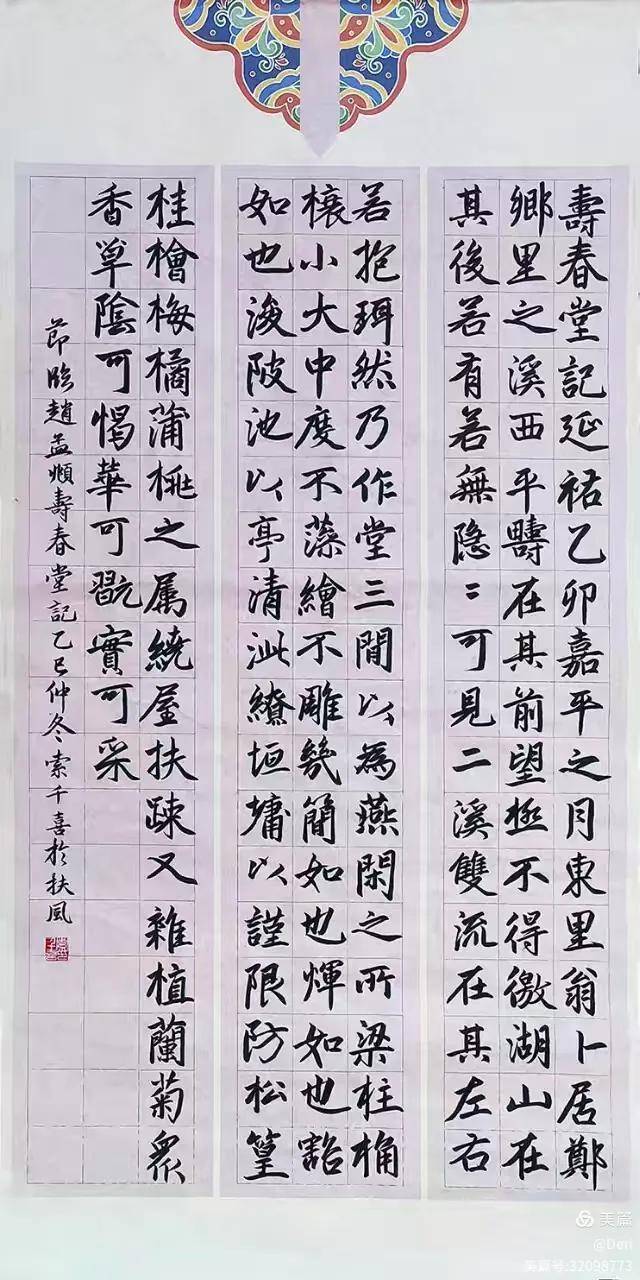 壽春堂記延祐乙卯嘉平之月東里翁卜居鄭
鄉里之溪西平疇在其前望極不得徼湖山在
其後若有若無隐〻可見二溪雙流在其左右
若抱珥然乃作堂三間以為燕閑之所梁柱桷
榱小大中度不藻繪不雕幾簡如也煇如也豁
如也浚陂池以亭清泚繚垣墉以謹限防松篁
桂檜梅橘蒲桃之属繞屋扶踈又雜植蘭菊衆
香草陰可愒華可翫實可采
節臨趙孟頫壽春堂記乙巳仲冬索千喜於扶風
美篇
@Den
美篇号:32098773